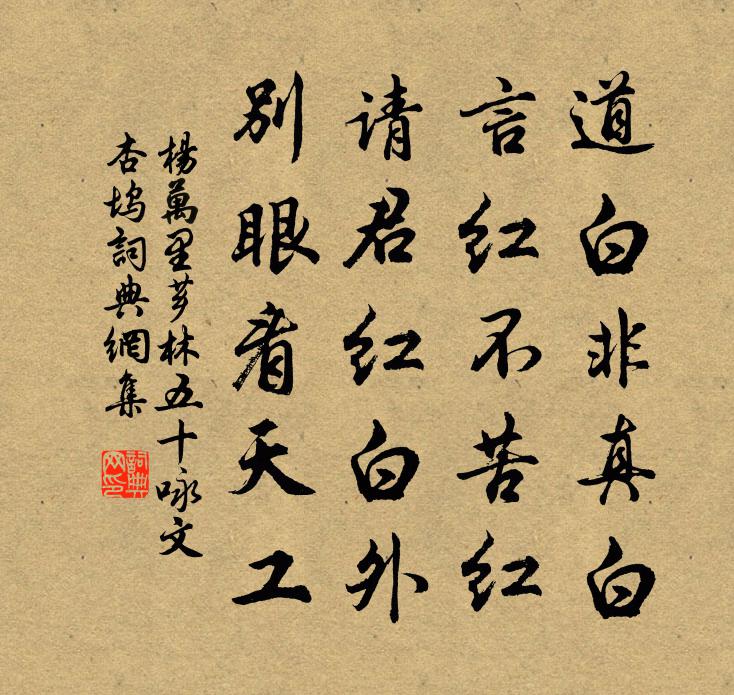 道白非真白
言红不苦红
请君红白外
别眼看天工
楊萬里芗林五十咏文
杏塢詞典網集
詞典网印